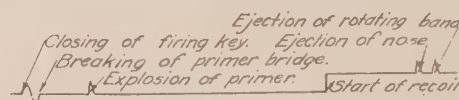 Ejection of rotating band
Closing of firing key. Ejection of nose
Breaking of primer bridge.
Explosion of primer.
Start of recoil